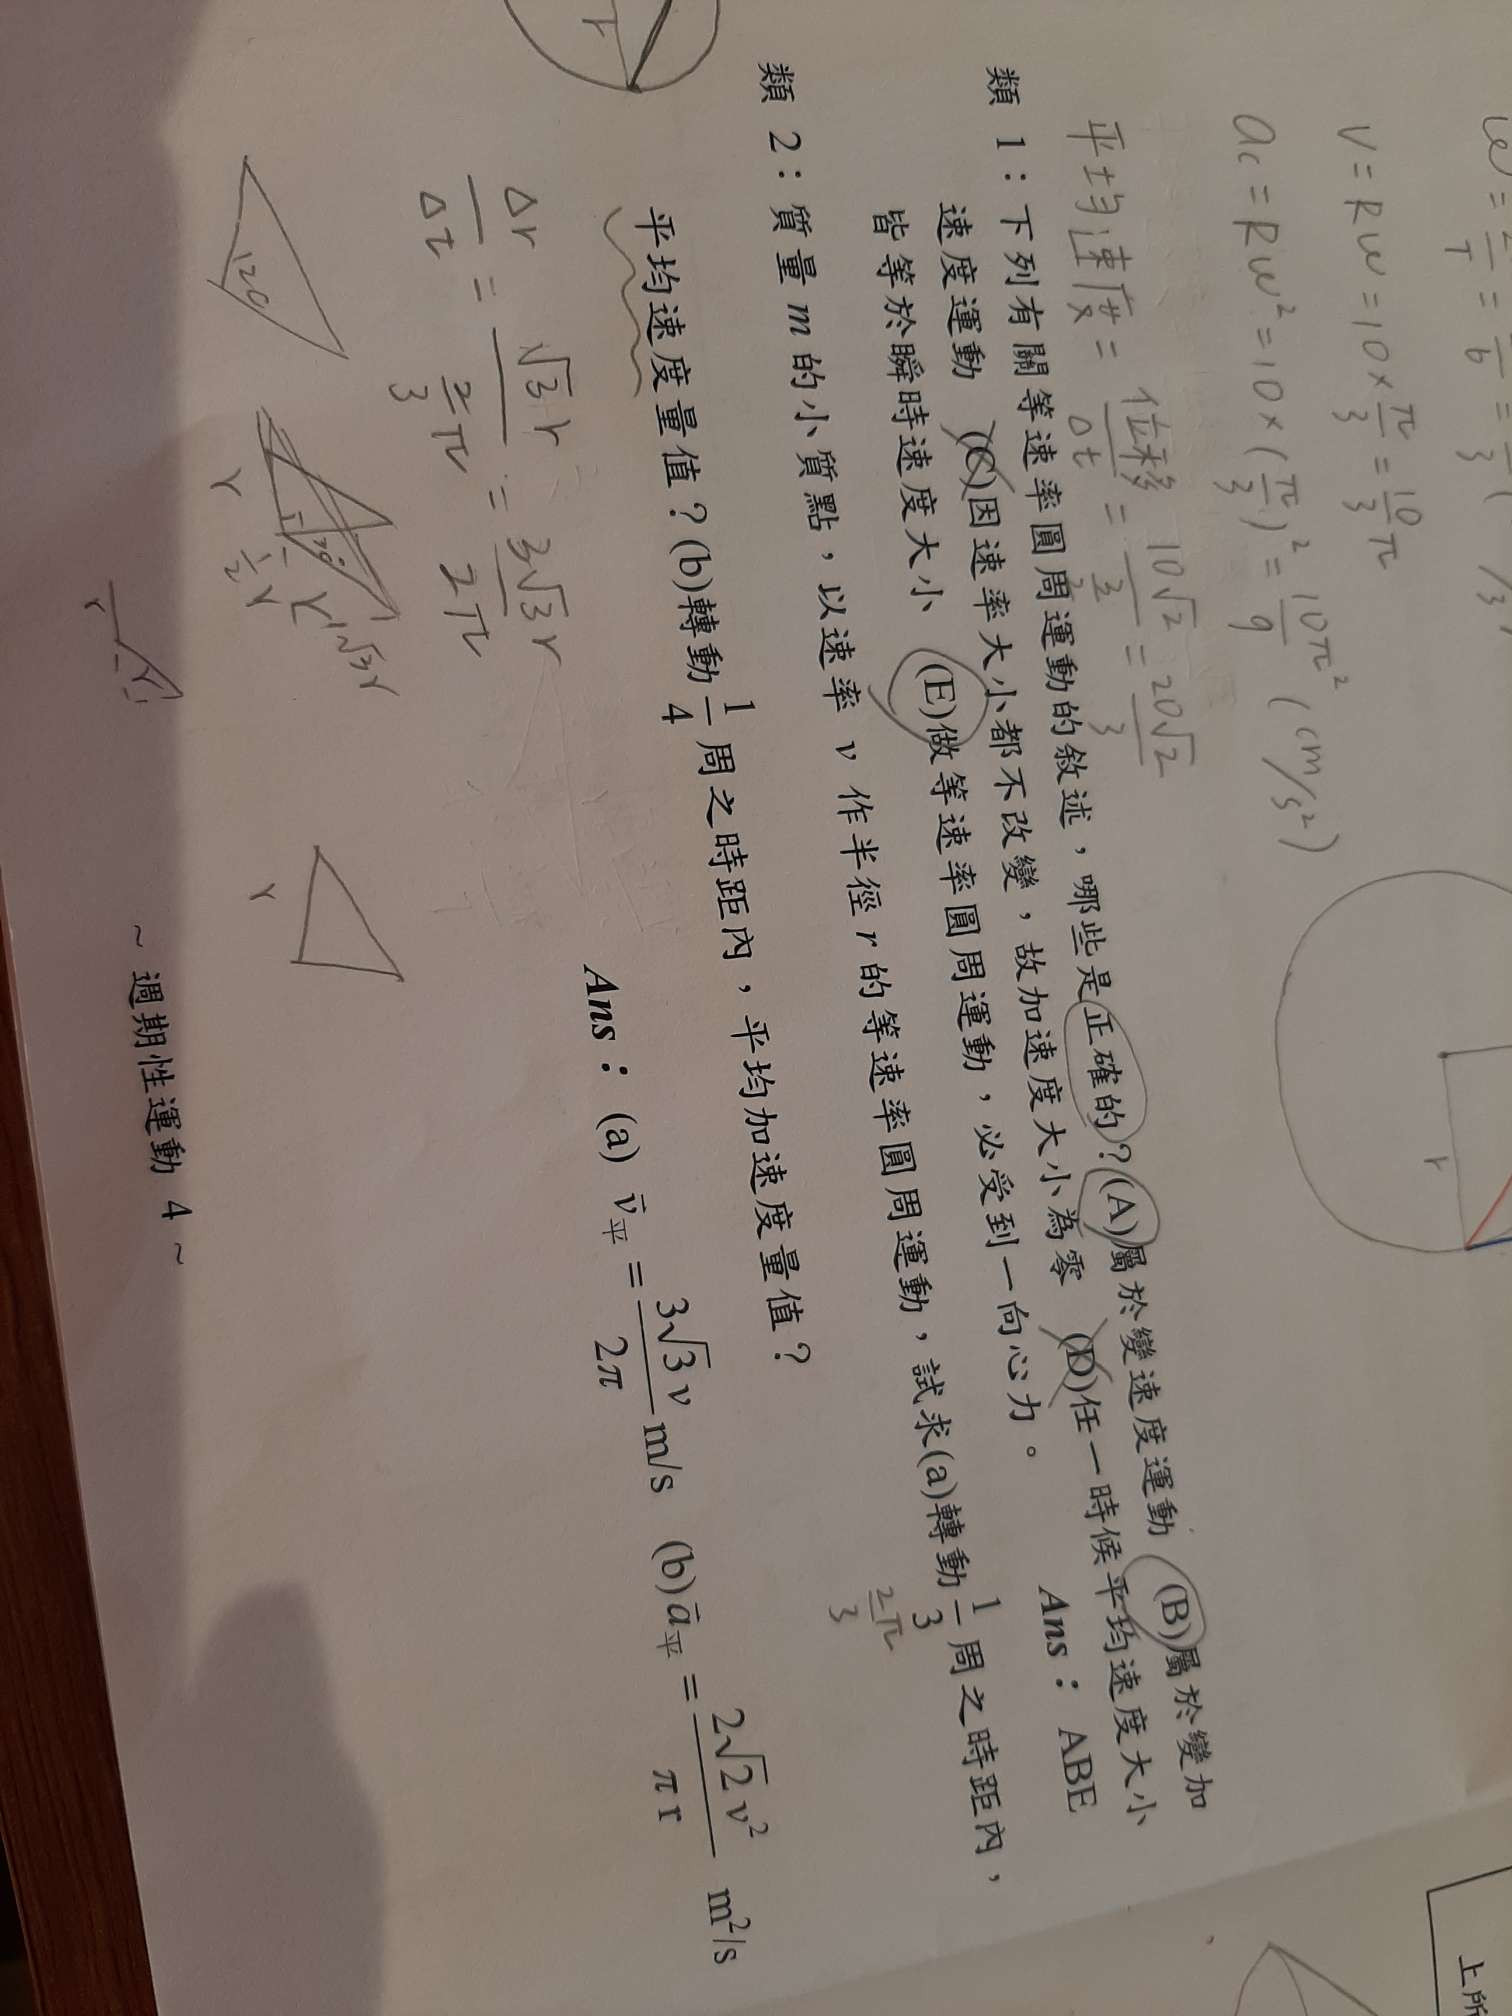 V = Rω = 10 × π/3 = 10/3 π
ac = Rω² = 10 × (π/3)² = 10π²/9 (cm/s²)
平均速度 = 位移/Δt = 10√2/(3/2) = 20√2/3
類 1：下列有關等速率圓周運動的敘述，哪些是正確的？(A)屬於變速度運動 (B)屬於變加
速度運動 (C)因速率大小都不改變，故加速度大小為零 (D)任一時候平均速度大小
皆等於瞬時速度大小 (E)做等速率圓周運動，必受到一向心力。
Ans：ABE
類 2：質量 m 的小質點，以速率 v 作半徑 r 的等速率圓周運動，試求(a)轉動 1/3 周之時距內，
2π/3
平均速度量值？(b)轉動 1/4 周之時距內，平均加速度量值？
Ans：(a) v̄平 = 3√3 v/2π m/s (b) ā平 = 2√2 v²/π r m²/s
Δr/Δt = √3 r/(2/3 π) = 3√3 r/2π
120
r
r
½r
√3r
r
r
r
～週期性運動 4～
上所